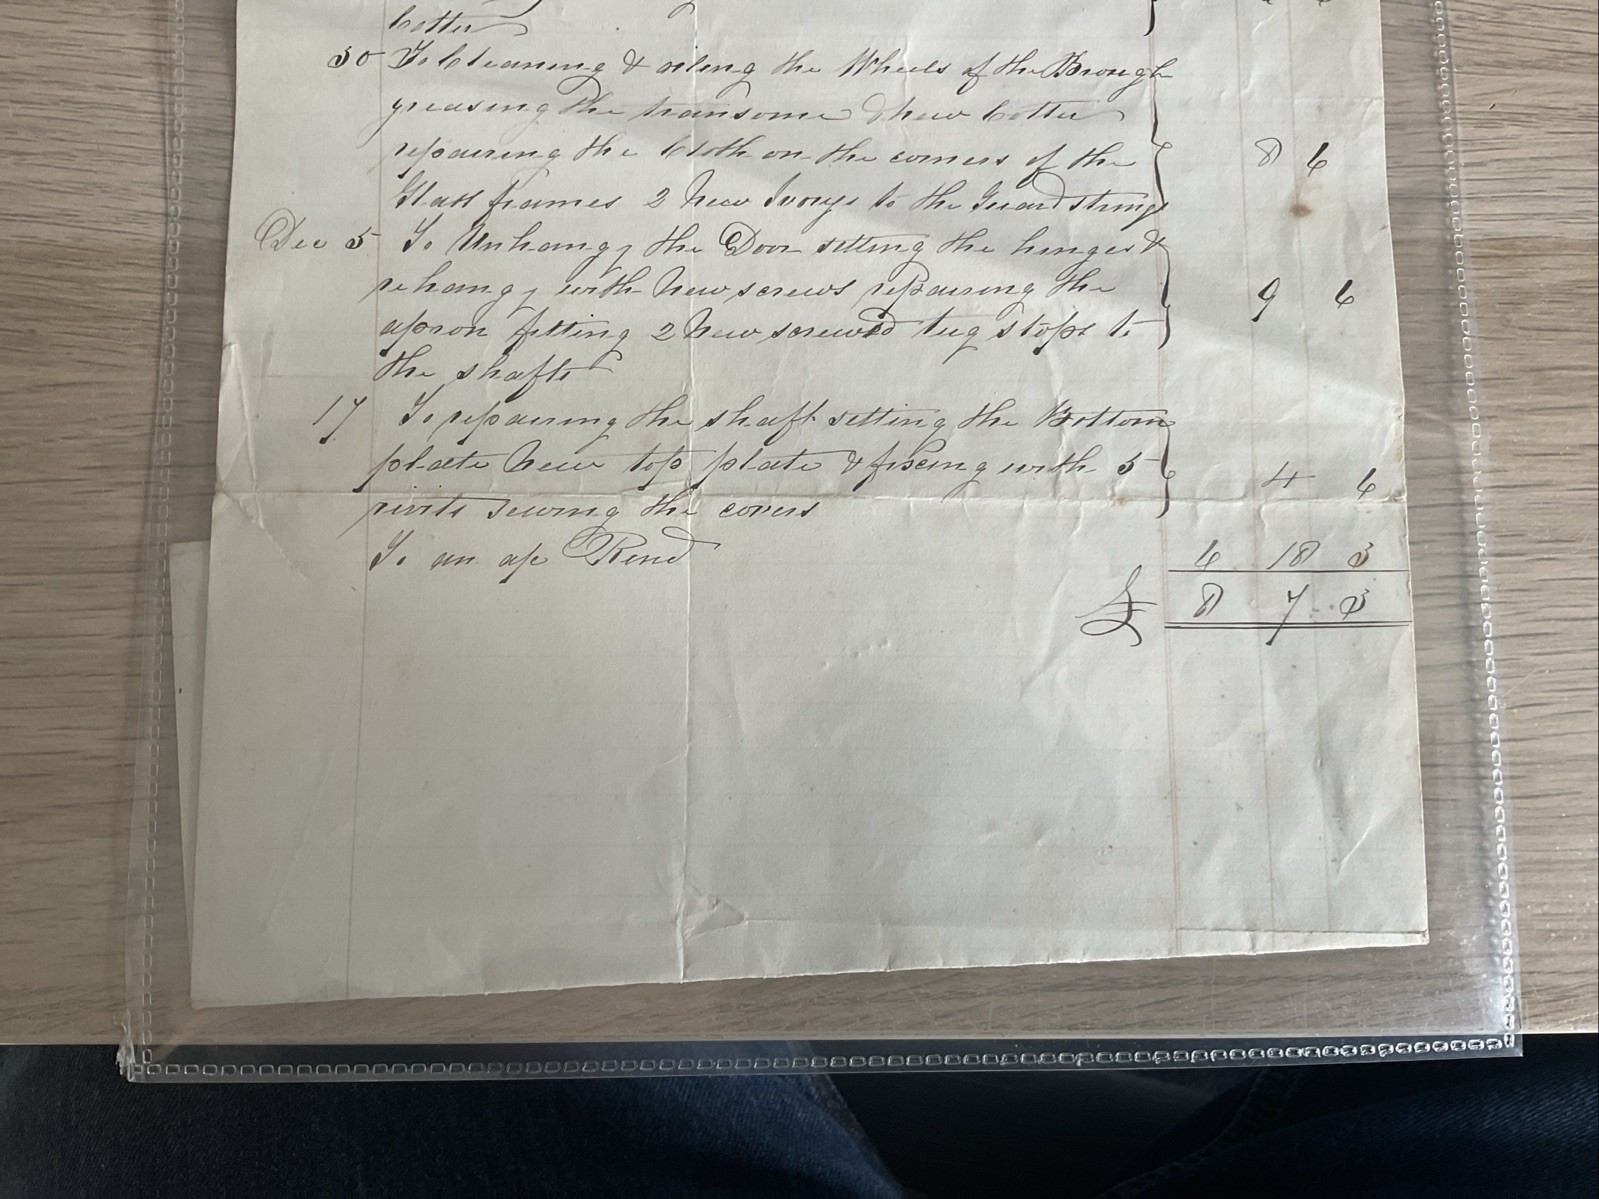 Cotter
30 To Cleaning & oiling the Wheels of the Brough
greasing the transome & New Cotter
repairing the Cloth on the corners of the 8 6
Glass frames 2 New Ivorys to the Guard string
Dec 5 To Unhangg the Door setting the hinges &
rehangg with New screws repairing the 9 6
apron fitting 2 New screwed tug stops to
the shafts
17 To repairing the shaft setting the Bottom
plate New top plate & fixing with 5 4 6
rivits sewing the covers
To an a/c Rend 4 18 3
£ 8 7 3